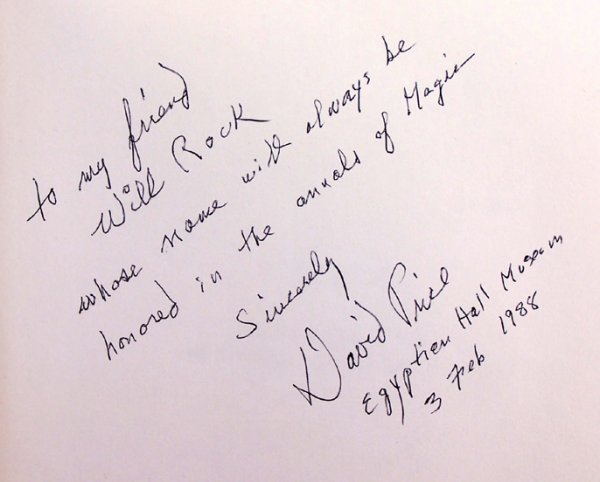 to my friend
Will Rock
whose name will always be
honored in the annals of Magic
Sincerely
David Price
Egyptian Hall Museum
3 Feb 1988